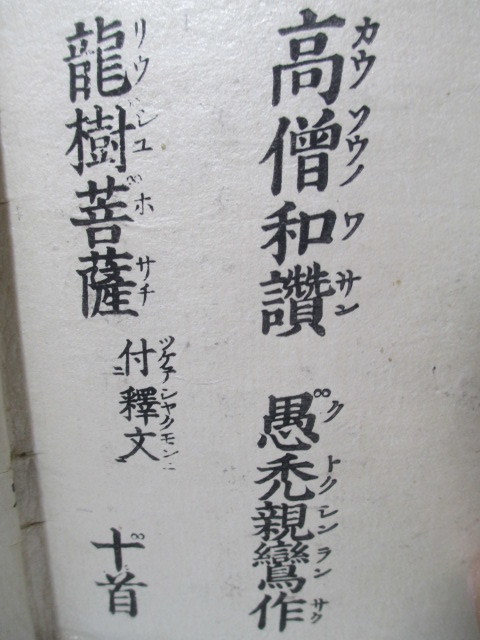 高僧和讃 愚禿親鸞作
カウソウノワサン クトクシンランサク
龍樹菩薩 付釋文 十首
リウシユホサチ ツケテシヤクモンニ